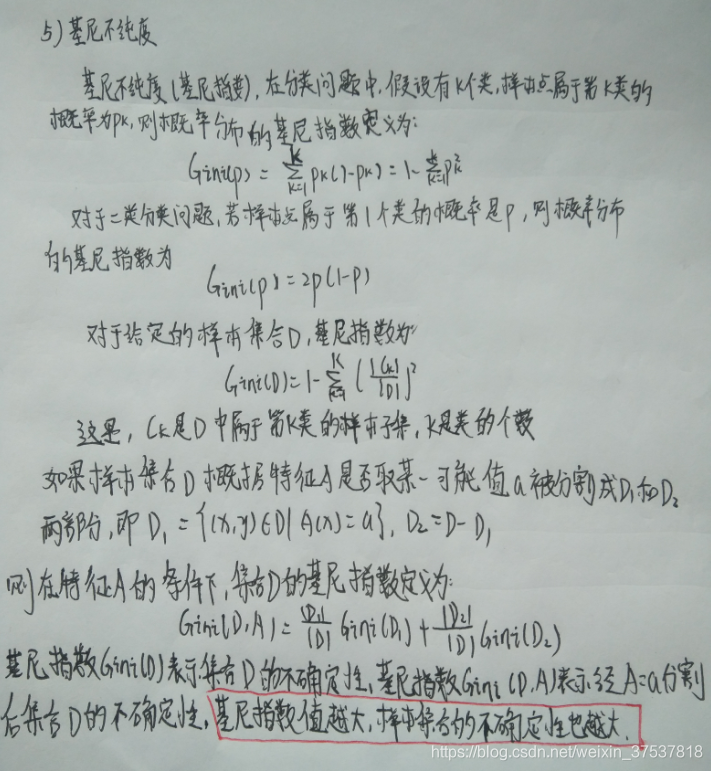 5) 基尼不纯度
基尼不纯度(基尼指数), 在分类问题中, 假设有K个类, 样本点属于第K类的
概率为pk, 则概率分布的基尼指数定义为:
Gini(p) = \sum_{k=1}^{K} pk(1-pk) = 1- \sum_{k=1}^{K} p_k^2
对于二类分类问题, 若样本点属于第1个类的概率是p, 则概率分布
的基尼指数为
Gini(p) = 2p(1-p)
对于给定的样本集合D, 基尼指数为:
Gini(D) = 1- \sum_{k=1}^{K} (|Ck|/|D|)^2
这里, Ck是D中属于第K类的样本子集, K是类的个数
如果样本集合D概据特征A是否取某一可能值a被分割成D1和D2
两部分, 即 D1 = {(x,y)∈D| A(x)=a}, D2=D-D1
则在特征A的条件下, 集合D的基尼指数定义为:
Gini(D,A) = |D1|/|D| Gini(D1) + |D2|/|D| Gini(D2)
基尼指数Gini(D)表示集合D的不确定性, 基尼指数Gini(D,A)表示经A=a分割
后集合D的不确定性, 基尼指数值越大, 样本集合的不确定性也越大.
https://blog.csdn.net/weixin_37537818